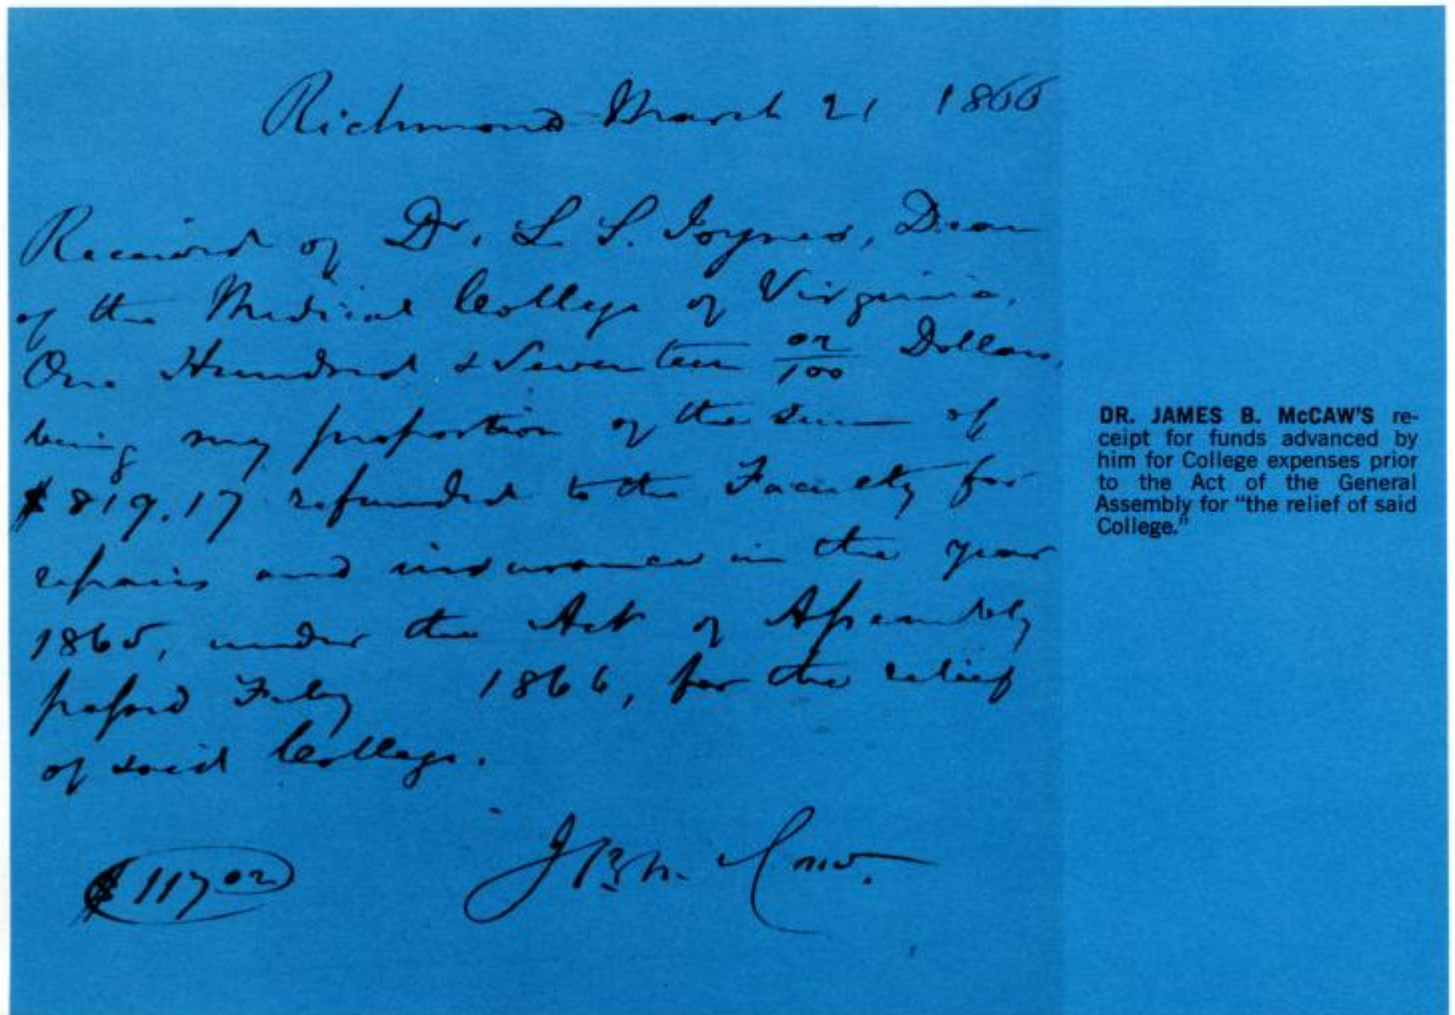 Richmond March 21 1866
Received of Dr. L. S. Joynes, Dean
of the Medical College of Virginia,
One Hundred & Seventeen 02/100 Dollars,
being my proportion of the sum of
$819.17 refunded to the Faculty for
repairs and insurance in the year
1865, under the Act of Assembly
passed Feby 1866, for the relief
of said College.
$117 02
J B McCaw.
DR. JAMES B. McCAW'S re-
ceipt for funds advanced by
him for College expenses prior
to the Act of the General
Assembly for "the relief of said
College."